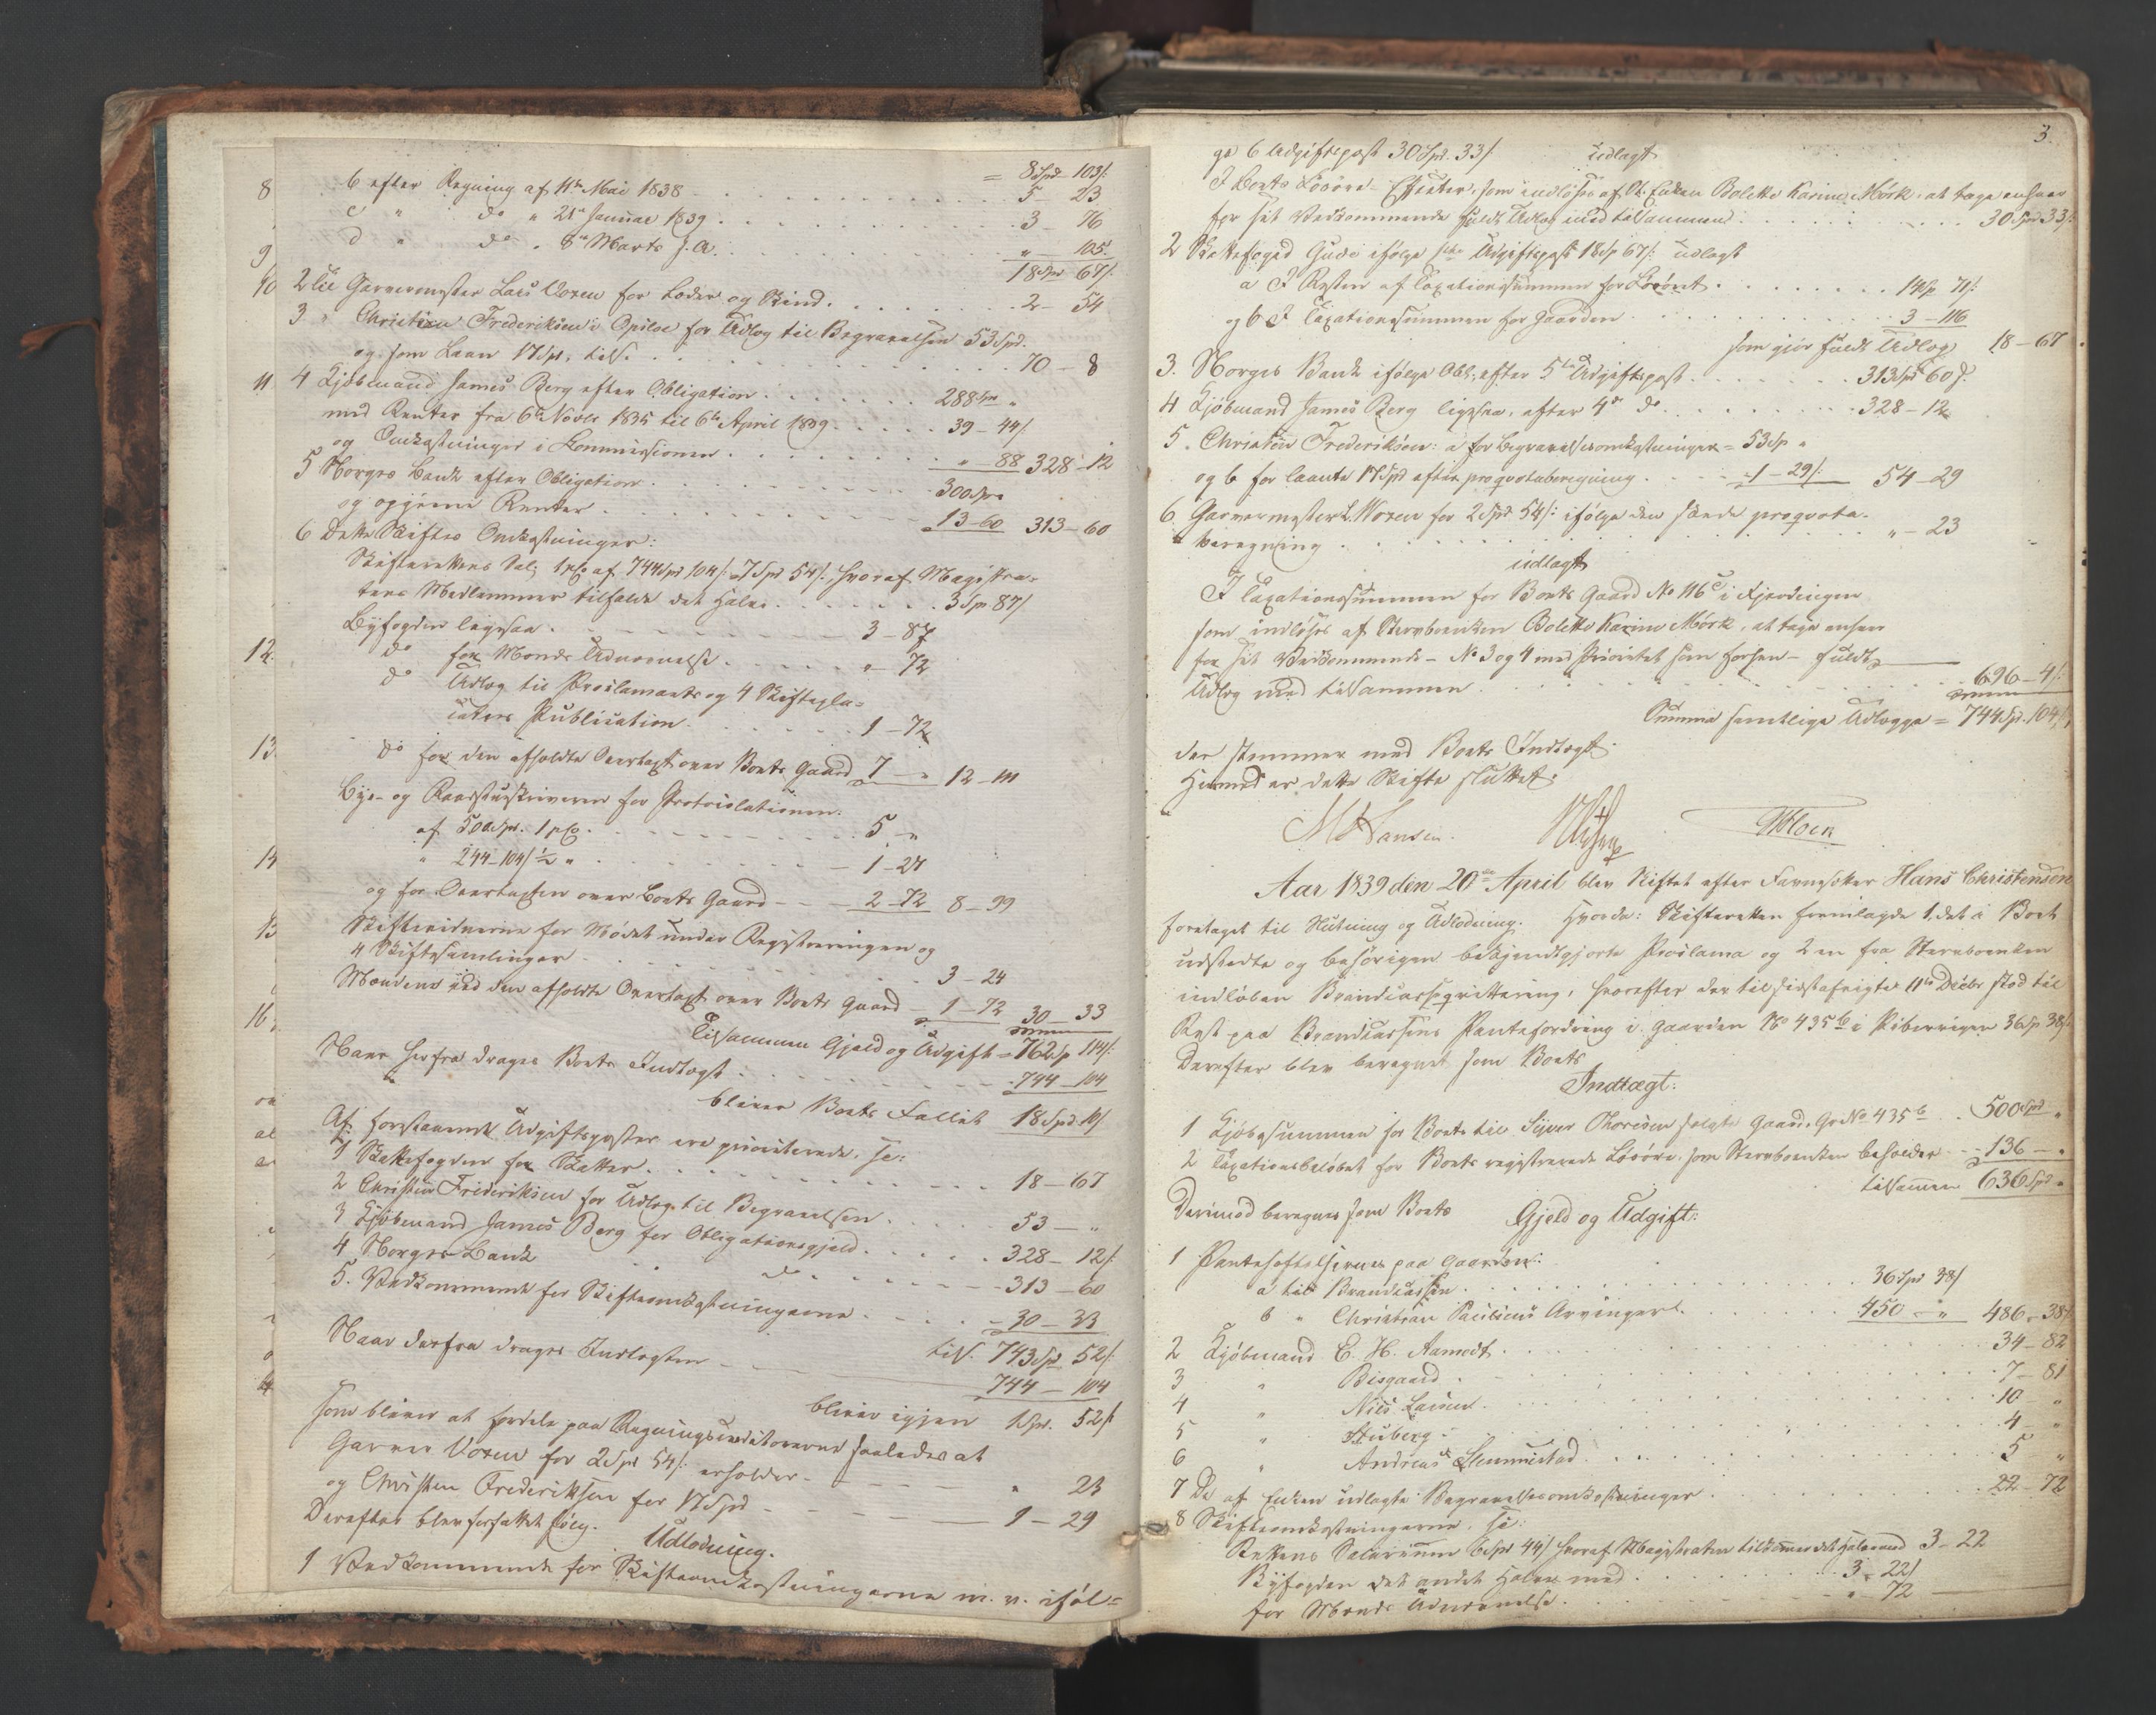 = 8 Spd 103/:
b efter Regning af 11te Mai 1838 - 5 - 23
c " do " 21de Januar 1839 . 3 - 76
d " do " 8de Marts s. A. " - 105
18 Spd 67/:
2 Til Garvermester Lars Woxen for Læder og Skind . 2 - 54
3 " Christian Frederiksen i Opsloe for Udlæg til Begravelsen 53 Spd.
og som Laan 17 Spd, tils. 70 - 8
4 Kjøbmand James Berg efter Obligation . 288 Spd "
med Renter fra 6te Novbr 1835 til 6te April 1839 . 39 - 44/:
og Omkostninger i Commissionen . " - 88 328 - 12
5 Norges Bank efter Obligation . 300 Spd
og opgivne Renter . 13 - 60 313 - 60
6 Dette Skiftes Omkostninger:
Skifterettens Sal; 1 pC. af 744 Spd 104/: 7 Spd 54/:, hvoraf Magistra-
tens Medlemmer tilfalde det halve . 3 Spd 87/
Byfogden ligesaa . 3 - 87
do for Mænds Udnævnelse . " - 72
do Udlæg til Proclamaets og 4 Skiftepla-
caters Publication . 1 - 72
do for den afholdte Overtaxt over Boets Gaard 7 - " 12 - 111
Bye- og Raadstueskriveren for Protocollationen.
af 500 Spd. 1 pC. 5 - "
" 244 - 104/ ½ " 1 - 27
og for Overtaxten over Boets Gaard - 2 - 72 8 - 99
Skiftevidnerne for Mødet under Registreringen og
4 Skiftesamlinger . 3 - 24
Mændene ved den afholdte Overtaxt over Boets Gaard - 1 - 72 30 - 33
Tilsammen Gjæld og Udgift = 762 Sp 114/:
Naar herfra drages Boets Indtægt . 744 - 104
bliver Boets Fallit 18 Spd 10/
Af forestaaende Udgiftsposter ere prioriterede, se:
1 Skattefogden for Skatter . 18 - 67
2 Christian Frideriksen for Udlæg til Begravelsen . 53 - "
3 Kjøbmand James Berg for Obligationsgjeld . 328 - 12/:
4 Norges Bank do 313 - 60
5. Vedkommende for Skifteomkostningerne . 30 - 33
tils. 743 Spd 52/:
Naar derfra drages Indtægten - 744 - 104
bliver igjen 1 Spd. 52/:
som bliver at fordele paa Regningscreditorerne saaledes at
Garver Woxen for 2 Spd 54/: erholder - " 23
og Christen Frederiksen for 17 Spd - 1 - 29
Derefter blev forfattet følg.
Udlodning.
1 Vedkommende for Skifteomkostningerne m. v. iføl-
3.
ge 6 Udgiftspost 30 Spd. 33/ udlagt
I Boets Løsøre-Effecter, som indløses af St. Enken Bolette Karine Mörk, at tage enhver
for sit Vedkommende fuldt Udlæg med tilsammen . 30 Spd 33/:
2 Skattefoged Gude ifølge 1ste Udgiftspost 18 Sp 67/: udlagt
a I Resten af Taxationssummen for Løsøret . 14 Sp 71/:
og b I Taxationssummen for Gaarden . 3 - 116
som gjør fuldt Udlæg 18 - 67
3. Norges Bank ifølge Obl; efter 5te Udgiftspost . 313 Spd 60/:
4 Kjøbmand James Berg ligesaa, efter 4de do . 328 - 12
5. Christian Frederiksen: a for Begravelsesomkostninger = 53 Sp "
og b for laante 17 Spd efter proqvotaberegning . 1 - 29/: 54 - 29
6 Garvermester L. Woxen for 2 Spd 54/: ifølge den skeede proqvota-
beregning . " - 23
udlagt
I Taxationssummen for Boets Gaard No 116 c i Fjerdingen
som indløses af Stervboenken Bolette Karine Mörk, at tage enhver
for sit Vedkommende - No 3 og 4 med Prioritet som forhen - fuldt
Udlæg med tilsammen . 696 - 4/:
Summa samtlige Udlægge = 744 Spd. 104/:
der stemmer med Boets Indtægt.
Hermed er dette Skifte sluttet:
M Hansen.
Aar 1839 den 20de April blev Skiftet efter Hans Christensen
foretaget til Slutning og Udlodning. Hvorda: Skifteretten fremlagde 1, det i Boet
udstedte og behørigen bekjendtgjorte Proclama og 2 en fra Stervboenken
indløben Brandcasseqvittering, hvorefter der til sidstafvigte 11te Decbr stod til
Rest paa Brandcassens Pantefordring i Gaarden No 435 b i Pibervigen 36 Sp 38/:
Derefter blev beregnet som Boets
Indtægt:
1 Kjøbesummen for Boets til Siver Thoresen solgte Gaard, Gr. No 435 b . 500 Spd "
2 Taxationsbeløbet for Boets registrerede Løsøre, som Stervboenken beholder - 136 - "
tilsammen 636 Spd "
Derimod beregnes som Boets Gjeld og Udgift:
1 Panteheftelserne paa Gaarden:
a til Brandcassen . 36 Spd 38/
b " Christian Arvinger . 450 - " 486 - 38/
2 Kjøbmand C. H. Aamodt . 34 - 82
3 " Bisgaard . 7 - 81
4 " Niels Larsen . 10 - "
5 " Stuberg . 4 - "
6 " Andreas Slemmestad . 5 - "
7 De af Enken udlagte Begravelsesomkostninger . 22 - 72
8 Skifteomkostningerne, se:
Rettens Salarium 6 Spd 44/ hvoraf Magistraten tilkommer det halve med 3 - 22
Byfogden det andet halve med . 3 - 22/
for Mænds Udnævnelse . " 72